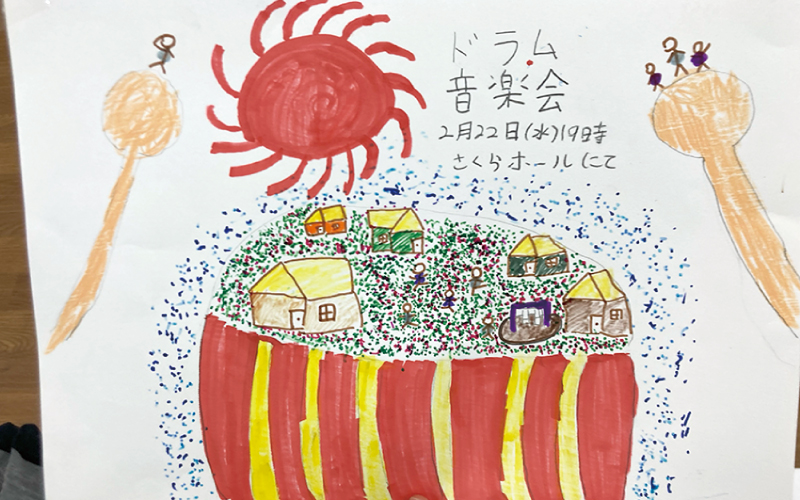 ドラム
音楽会
2月22日(水)19時
さくらホールにて